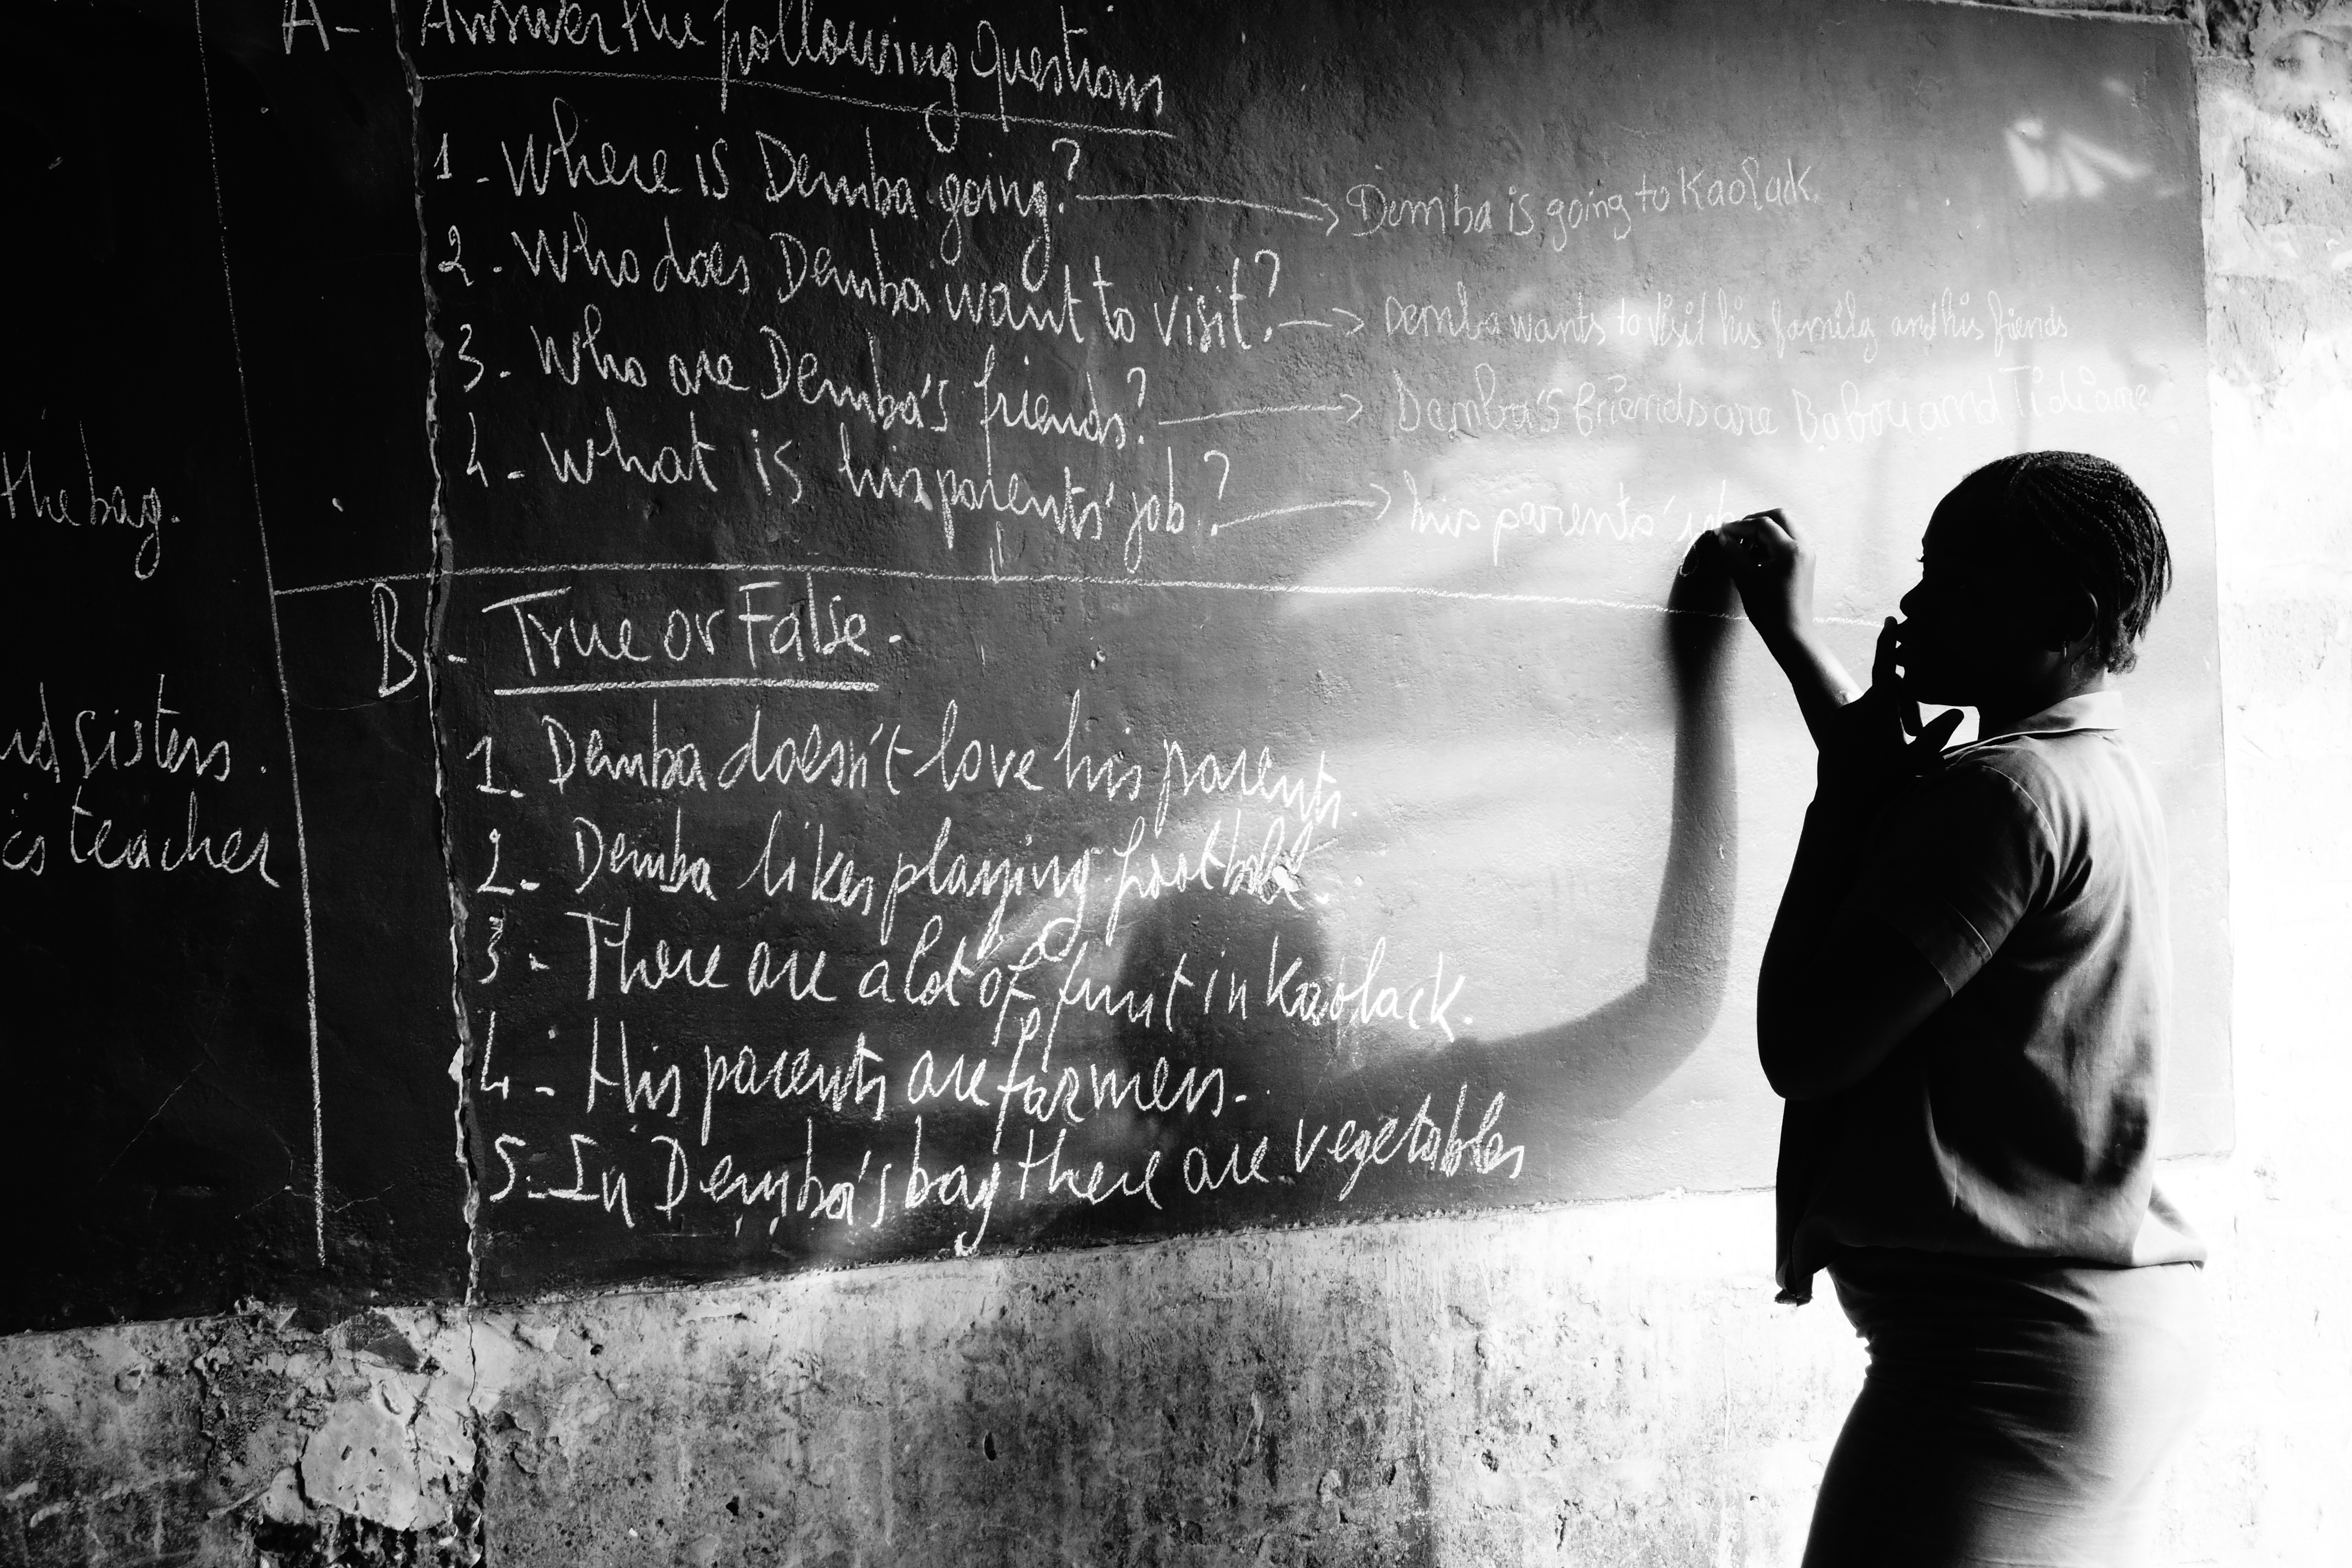 the bag.
sisters.
teacher
A- Answer the following questions
1- Where is Demba going? → Demba is going to Kaolack.
2- Who does Demba want to visit? → Demba wants to visit his family and his friends
3- Who are Demba's friends? → Demba's friends are Babou and Tidiane
4- What is his parents' job? → his parents' job
B- True or False.
1. Demba doesn't love his parents.
2- Demba likes playing football.
3- There are a lot of fruit in Kaolack.
4- His parents are farmers.
5- In Demba's bag there are vegetables